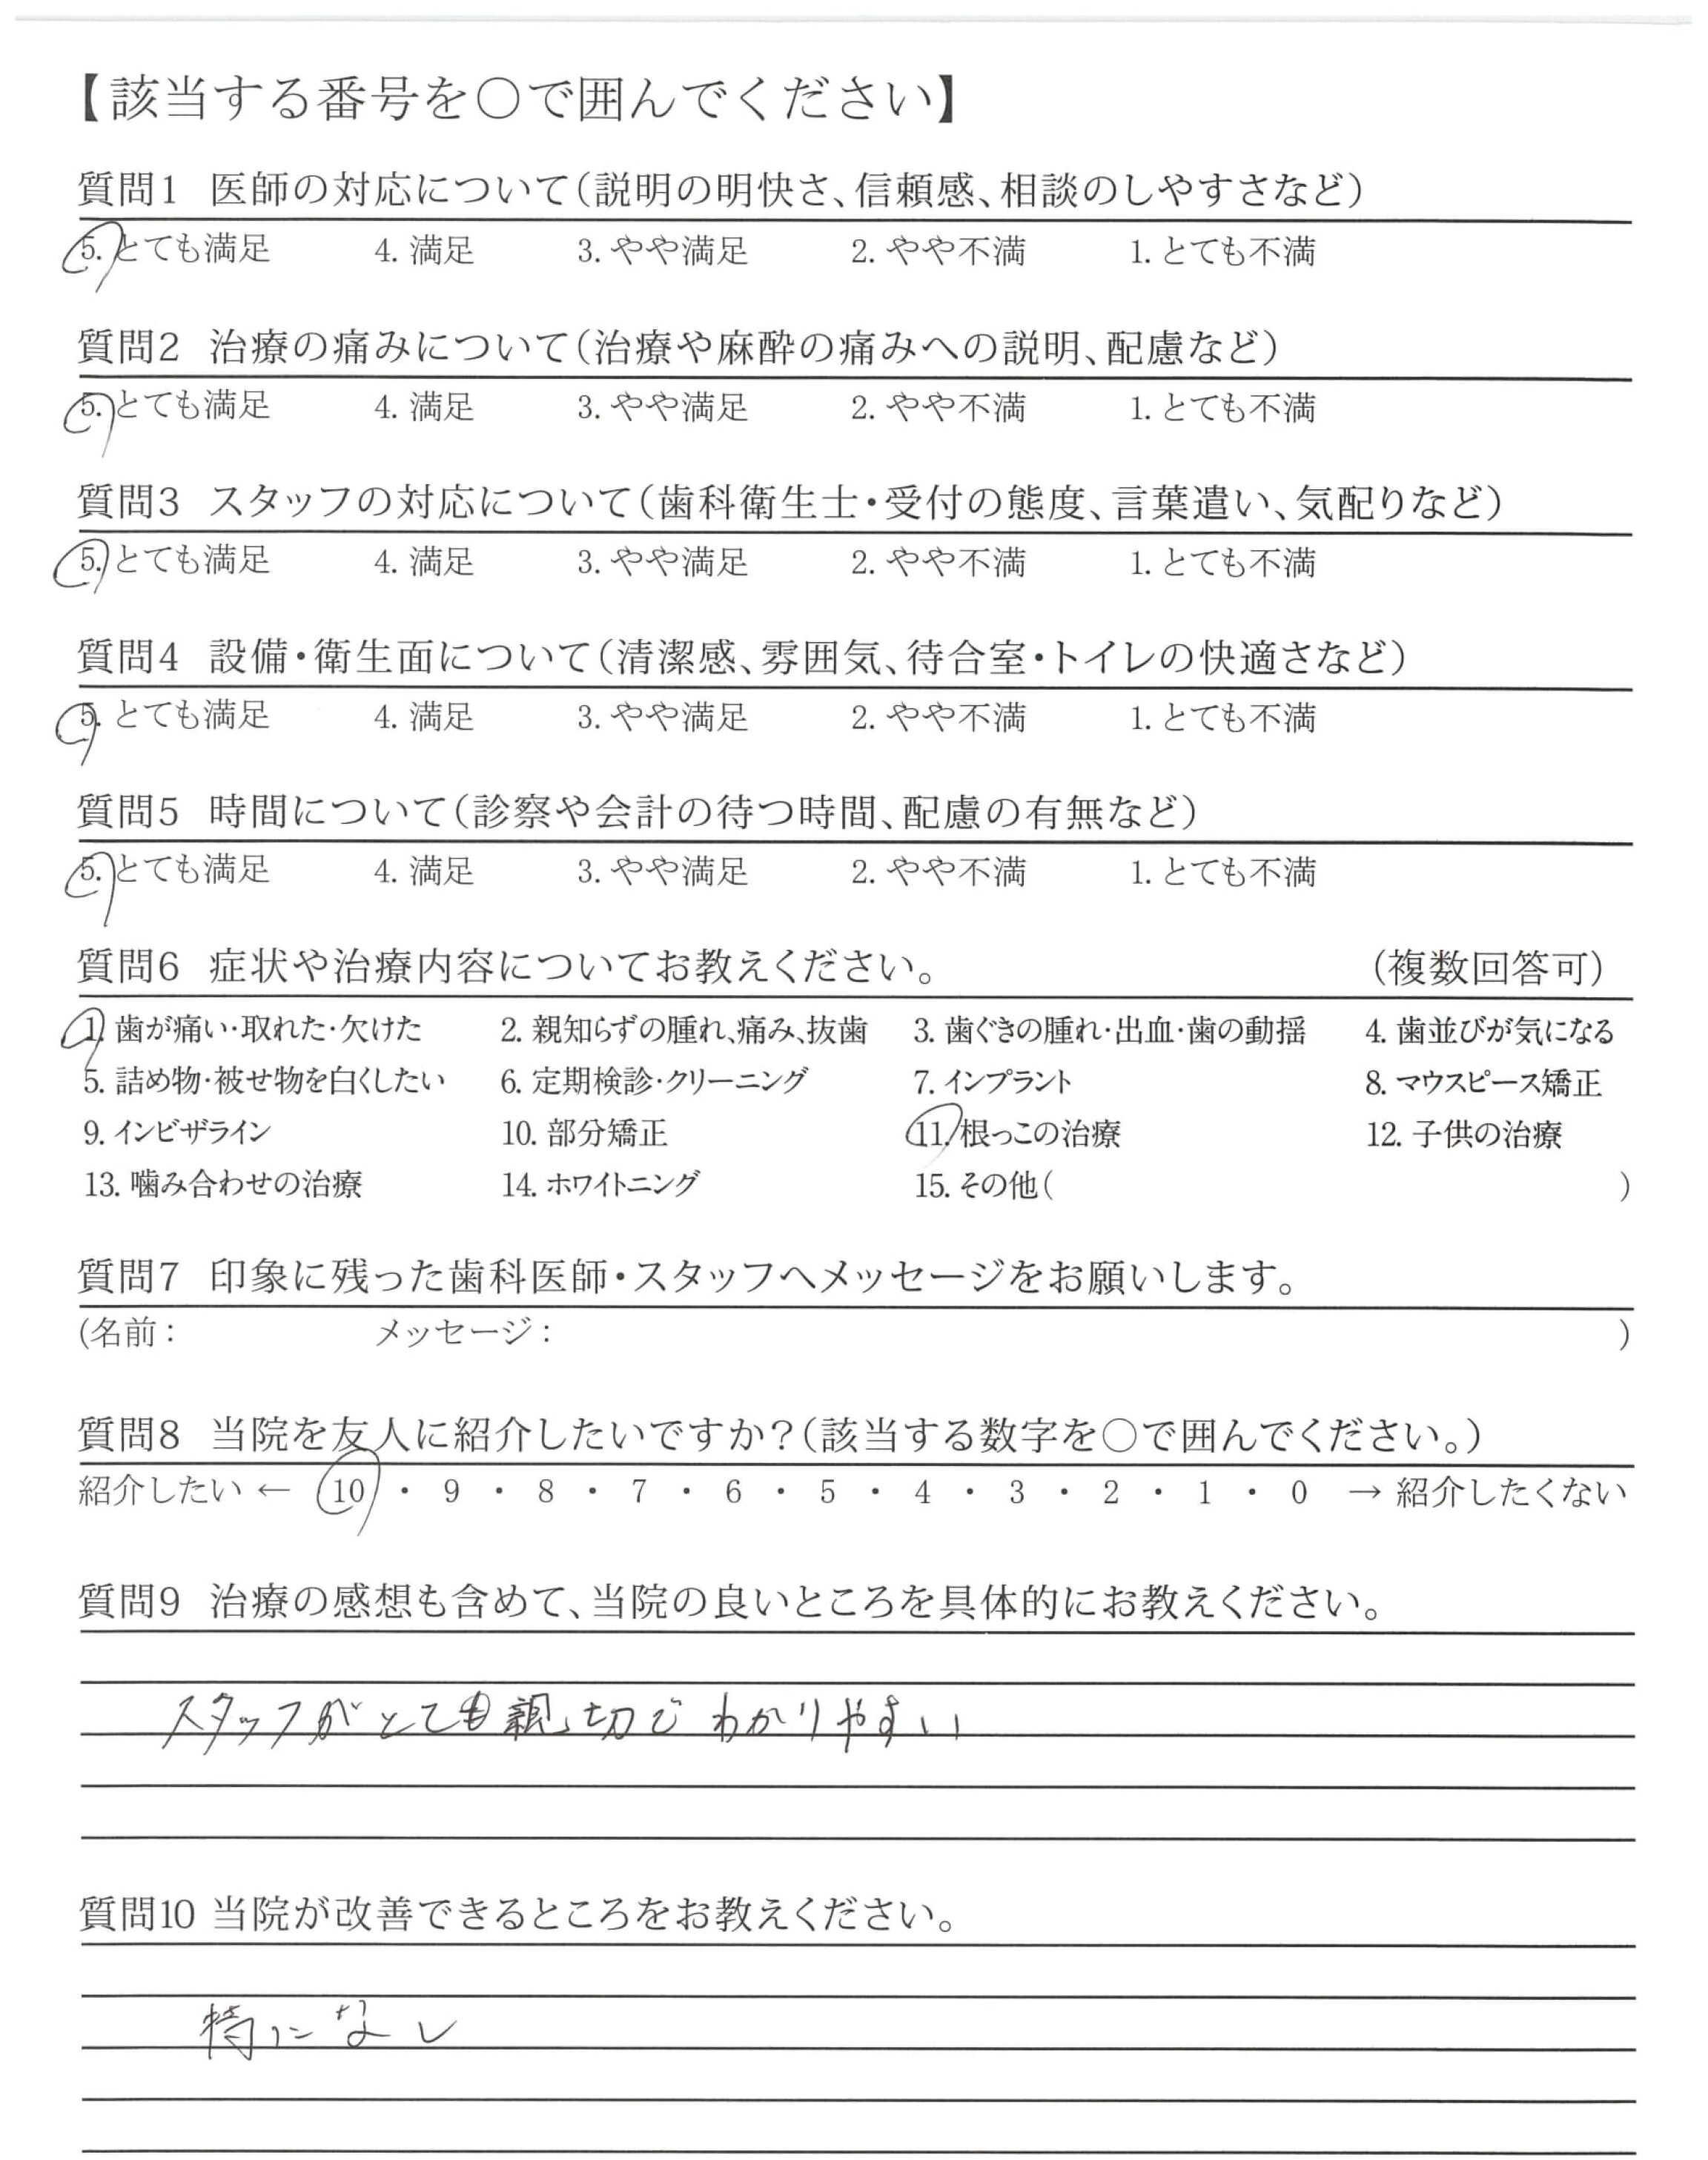 【該当する番号を〇で囲んでください】
質問1 医師の対応について(説明の明快さ、信頼感、相談のしやすさなど)
5. とても満足 4. 満足 3. やや満足 2. やや不満 1. とても不満
質問2 治療の痛みについて(治療や麻酔の痛みへの説明、配慮など)
5. とても満足 4. 満足 3. やや満足 2. やや不満 1. とても不満
質問3 スタッフの対応について(歯科衛生士・受付の態度、言葉遣い、気配りなど)
5. とても満足 4. 満足 3. やや満足 2. やや不満 1. とても不満
質問4 設備・衛生面について(清潔感、雰囲気、待合室・トイレの快適さなど)
5. とても満足 4. 満足 3. やや満足 2. やや不満 1. とても不満
質問5 時間について(診察や会計の待つ時間、配慮の有無など)
5. とても満足 4. 満足 3. やや満足 2. やや不満 1. とても不満
質問6 症状や治療内容についてお教えください。 (複数回答可)
1. 歯が痛い・取れた・欠けた 2. 親知らずの腫れ、痛み、抜歯 3. 歯ぐきの腫れ・出血・歯の動揺 4. 歯並びが気になる
5. 詰め物・被せ物を白くしたい 6. 定期検診・クリーニング 7. インプラント 8. マウスピース矯正
9. インビザライン 10. 部分矯正 11. 根っこの治療 12. 子供の治療
13. 噛み合わせの治療 14. ホワイトニング 15. その他( )
質問7 印象に残った歯科医師・スタッフへメッセージをお願いします。
(名前: メッセージ: )
質問8 当院を友人に紹介したいですか?(該当する数字を〇で囲んでください。)
紹介したい ← 10 ・ 9 ・ 8 ・ 7 ・ 6 ・ 5 ・ 4 ・ 3 ・ 2 ・ 1 ・ 0 → 紹介したくない
質問9 治療の感想も含めて、当院の良いところを具体的にお教えください。
スタッフがとても親切でわかりやすい
質問10 当院が改善できるところをお教えください。
特になし